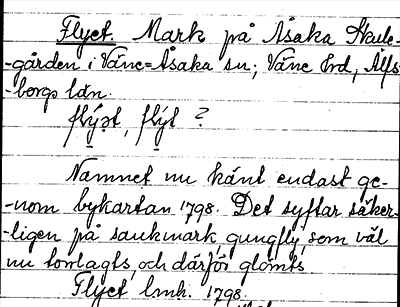 Flyet. Mark på Åsaka Skule-
-gården i Väne=Åsaka sn; Väne hrd, Älfs
-borgs län.
flýət, flýt ?
Namnet nu känt endast ge-
-nom bykartan 1798. Det syftar säker-
-ligen på sankmark gungfly, som väl
nu torrlagts, och därför glömts.
Flyet lmk. 1798.